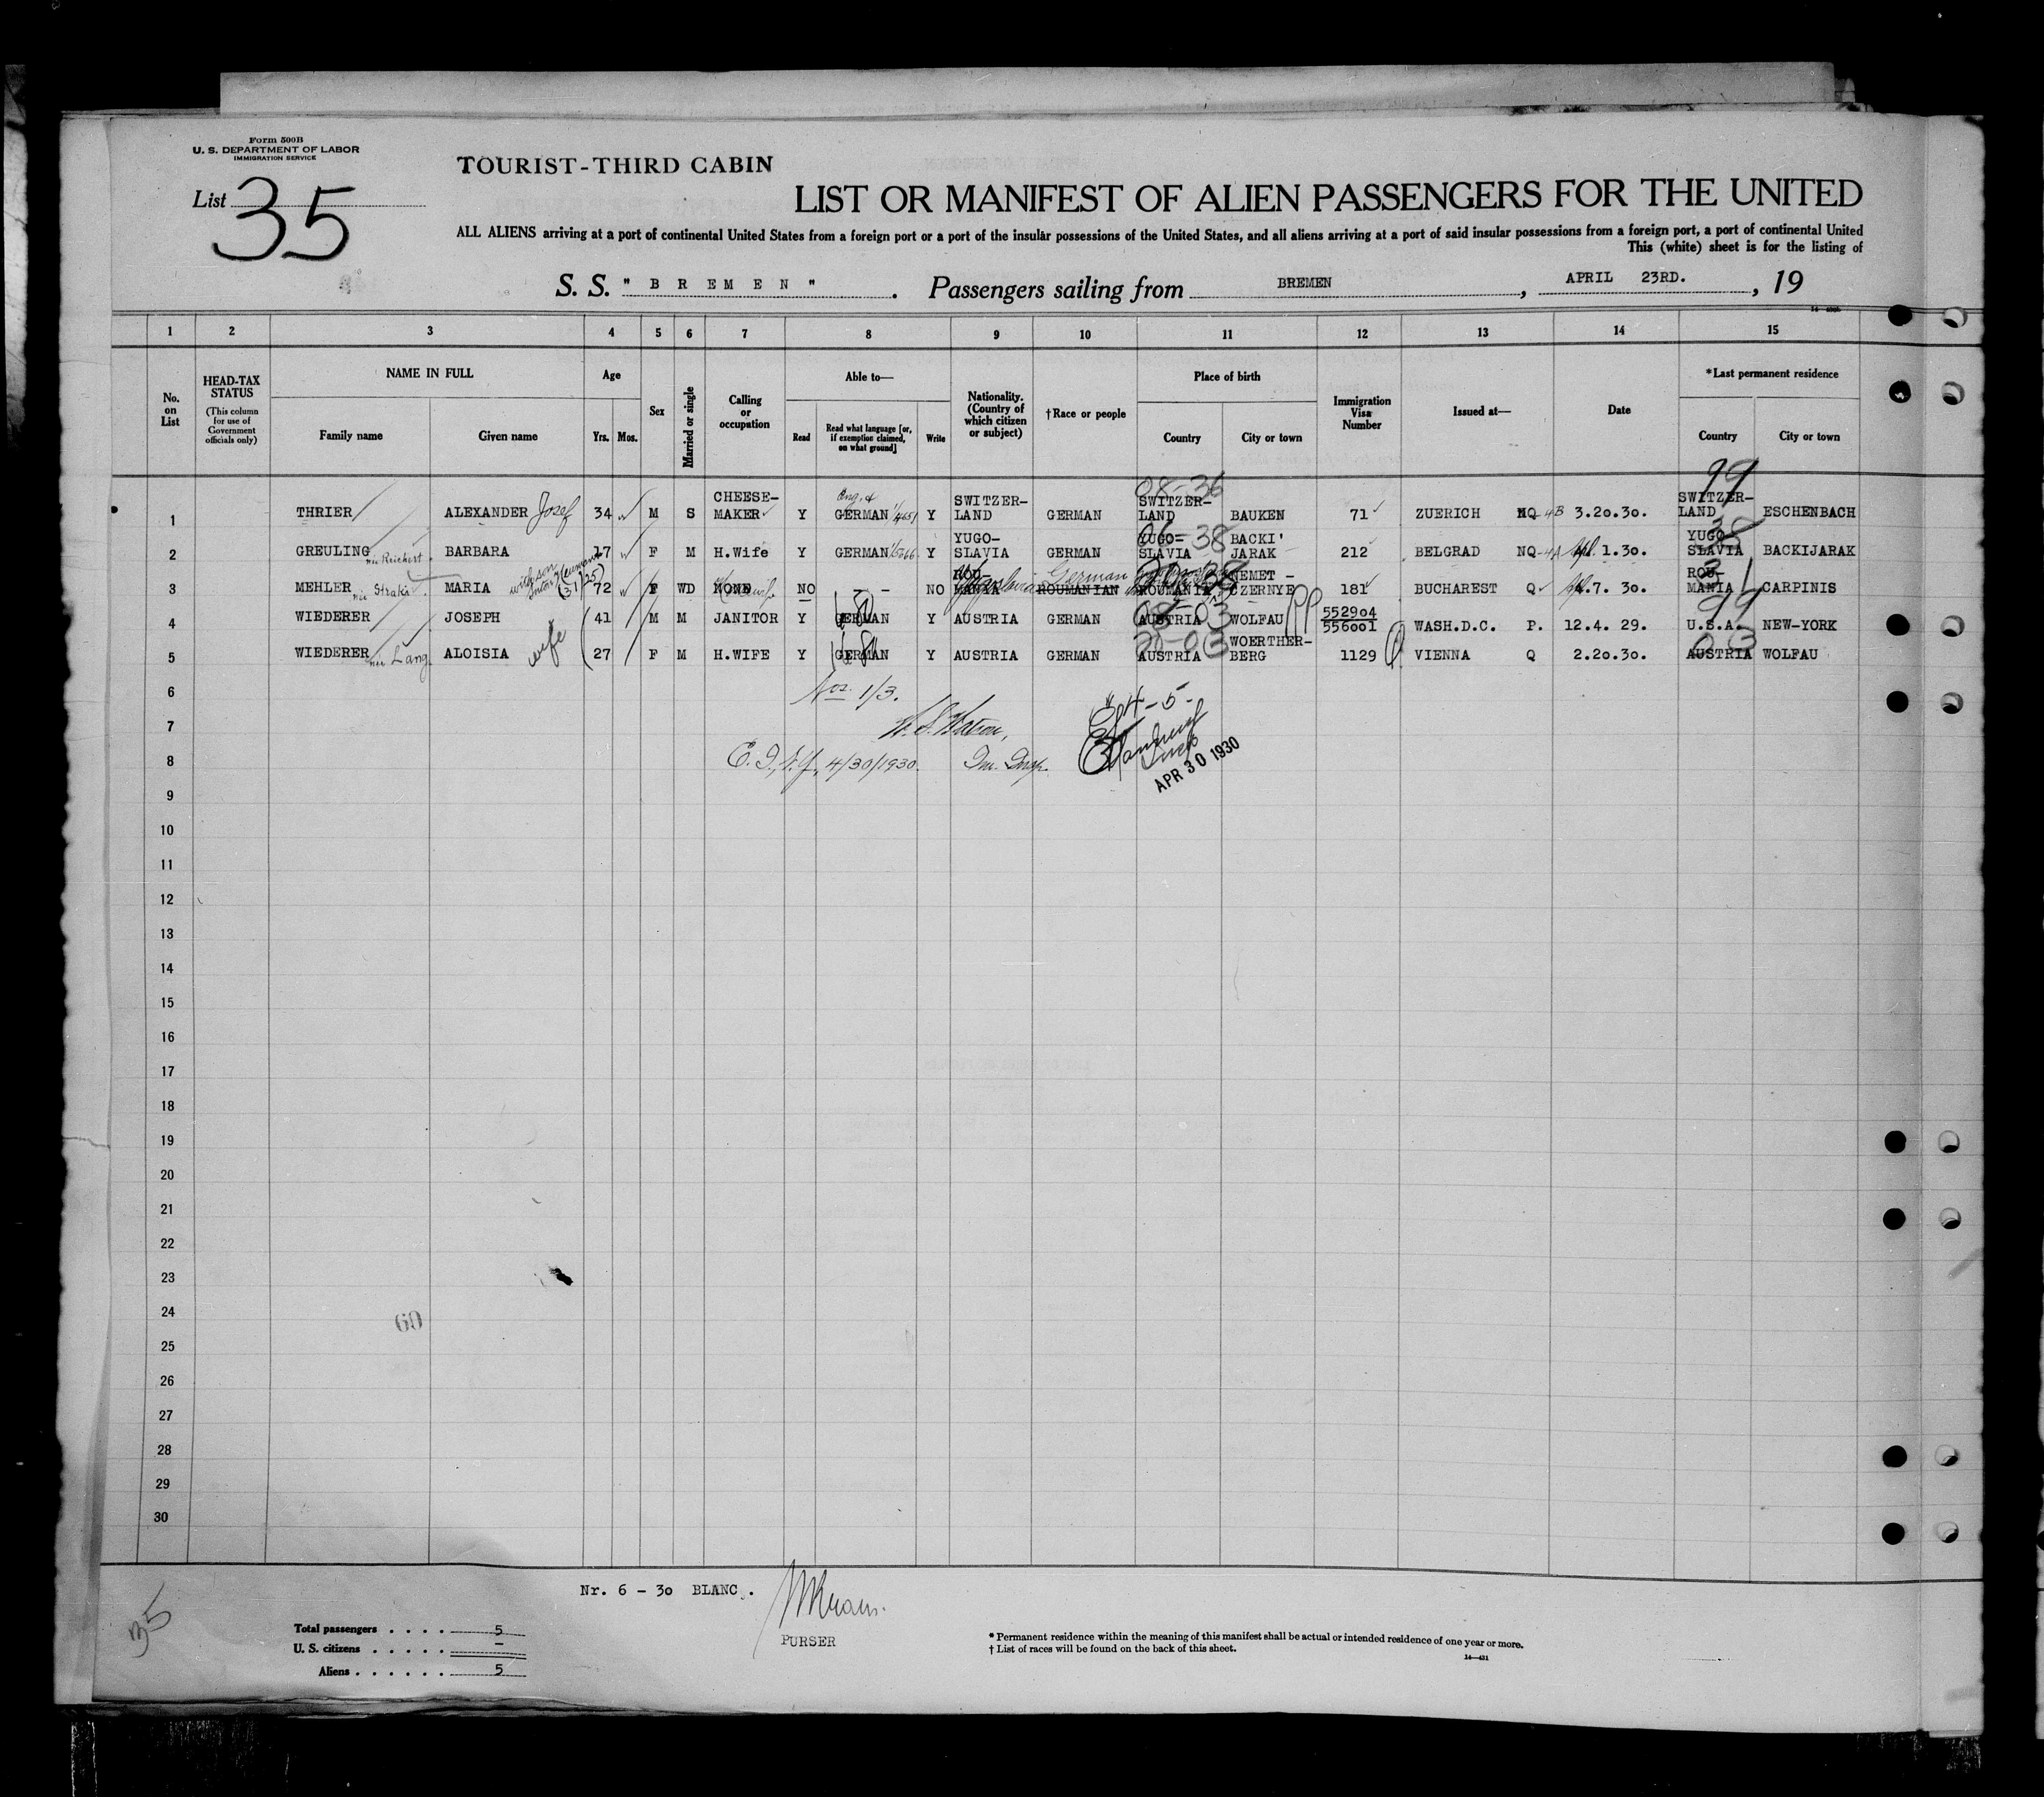 Form 500B
U. S. DEPARTMENT OF LABOR
IMMIGRATION SERVICE
List 35
TOURIST-THIRD CABIN
LIST OR MANIFEST OF ALIEN PASSENGERS FOR THE UNITED
ALL ALIENS arriving at a port of continental United States from a foreign port or a port of the insular possessions of the United States, and all aliens arriving at a port of said insular possessions from a foreign port, a port of continental United
This (white) sheet is for the listing of
S. S. " B R E M E N " . Passengers sailing from BREMEN , APRIL 23RD. , 19
1 2 3 4 5 6 7 8 9 10 11 12 13 14 15
No. on List
HEAD-TAX STATUS
(This column for use of Government officials only)
NAME IN FULL
Family name
Given name
Age
Yrs. Mos.
Sex
Married or single
Calling or occupation
Able to—
Read
Read what language [or, if exemption claimed, on what ground]
Write
Nationality. (Country of which citizen or subject)
†Race or people
Place of birth
Country
City or town
Immigration Visa Number
Issued at—
Date
*Last permanent residence
Country
City or town
1 THRIER ALEXANDER Josef 34 M S CHEESE-MAKER Y Eng. & GERMAN Y SWITZER-LAND GERMAN 08-36 SWITZER-LAND BAUKEN 71 ZUERICH NQ-4B 3.20.30. 99 SWITZER-LAND ESCHENBACH
2 GREULING née Reichert BARBARA 17 F M H.Wife Y GERMAN Y YUGO-SLAVIA GERMAN 38 YUGO=SLAVIA BACKI' JARAK 212 BELGRAD NQ-4A Apl. 1.30. 38 YUGO-SLAVIA BACKIJARAK
3 MEHLER née MARIA 72 F WD NONE NO - - NO ROU-MANIA ROUMANIAN German ROUMANIA NEMET-CZERNYE 181 BUCHAREST Q 7. 30. 31 ROU-MANIA CARPINIS
4 WIEDERER JOSEPH 41 M M JANITOR Y GERMAN Y AUSTRIA GERMAN 08-03 AUSTRIA WOLFAU PP 552904 556001 WASH.D.C. P. 12.4. 29. 99 U.S.A. NEW-YORK
5 WIEDERER née Lang ALOISIA wife 27 F M H.WIFE Y GERMAN Y AUSTRIA GERMAN 20-03 AUSTRIA WOERTHER-BERG 1129 VIENNA Q 2.20.30. 03 AUSTRIA WOLFAU
6
Nos. 1/3.
7
W. S. Watson,
8
E. I., N.Y., 4/30/1930. Im. Insp.
# 4-5-
APR 30 1930
9
10
11
12
13
14
15
16
17
18
19
20
21
22
23
24
60
25
26
27
28
29
30
Nr. 6 - 30 BLANC.
PURSER
35
Total passengers . . . . 5
U. S. citizens . . . . . —
Aliens . . . . . . 5
* Permanent residence within the meaning of this manifest shall be actual or intended residence of one year or more.
† List of races will be found on the back of this sheet.
14—421